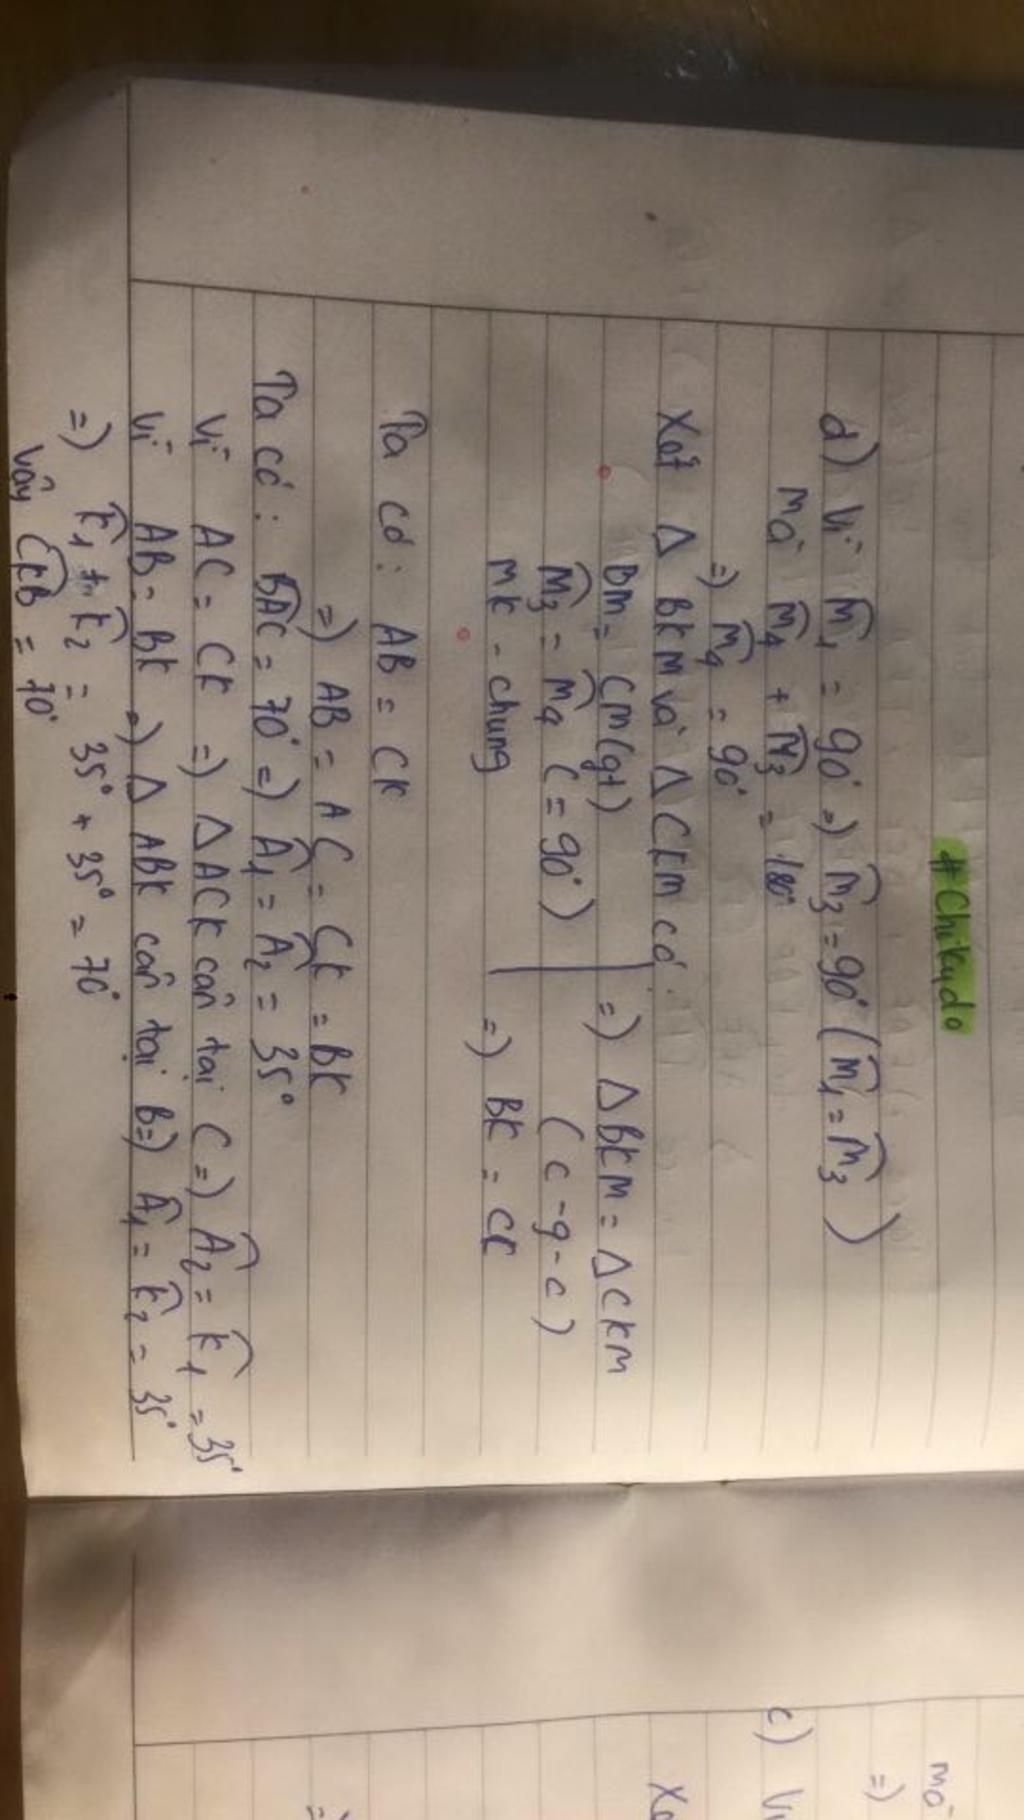 #Chikudo
d) Vì M̂₁ = 90° => M̂₃ = 90° (M̂₁ = M̂₃)
mà M̂₄ + M̂₃ = 180°
=> M̂₄ = 90°
Xét Δ BKM và Δ CKM có:
BM = CM (gt) => Δ BKM = Δ CKM
M̂₃ = M̂₄ (= 90°) (c-g-c)
MK - chung => BK = CK
Ta có: AB = CK
=> AB = AC = CK = BK
Ta có: BAC = 70° => Â₁ = Â₂ = 35°
Vì AC = CK => Δ ACK cân tại C => Â₂ = K̂₁ = 35°
Vì AB = BK => Δ ABK cân tại B => Â₁ = K̂₂ = 35°
=> K̂₁ + K̂₂ = 35° + 35° = 70°
Vậy CKB = 70°
mà
=>
c) Vì